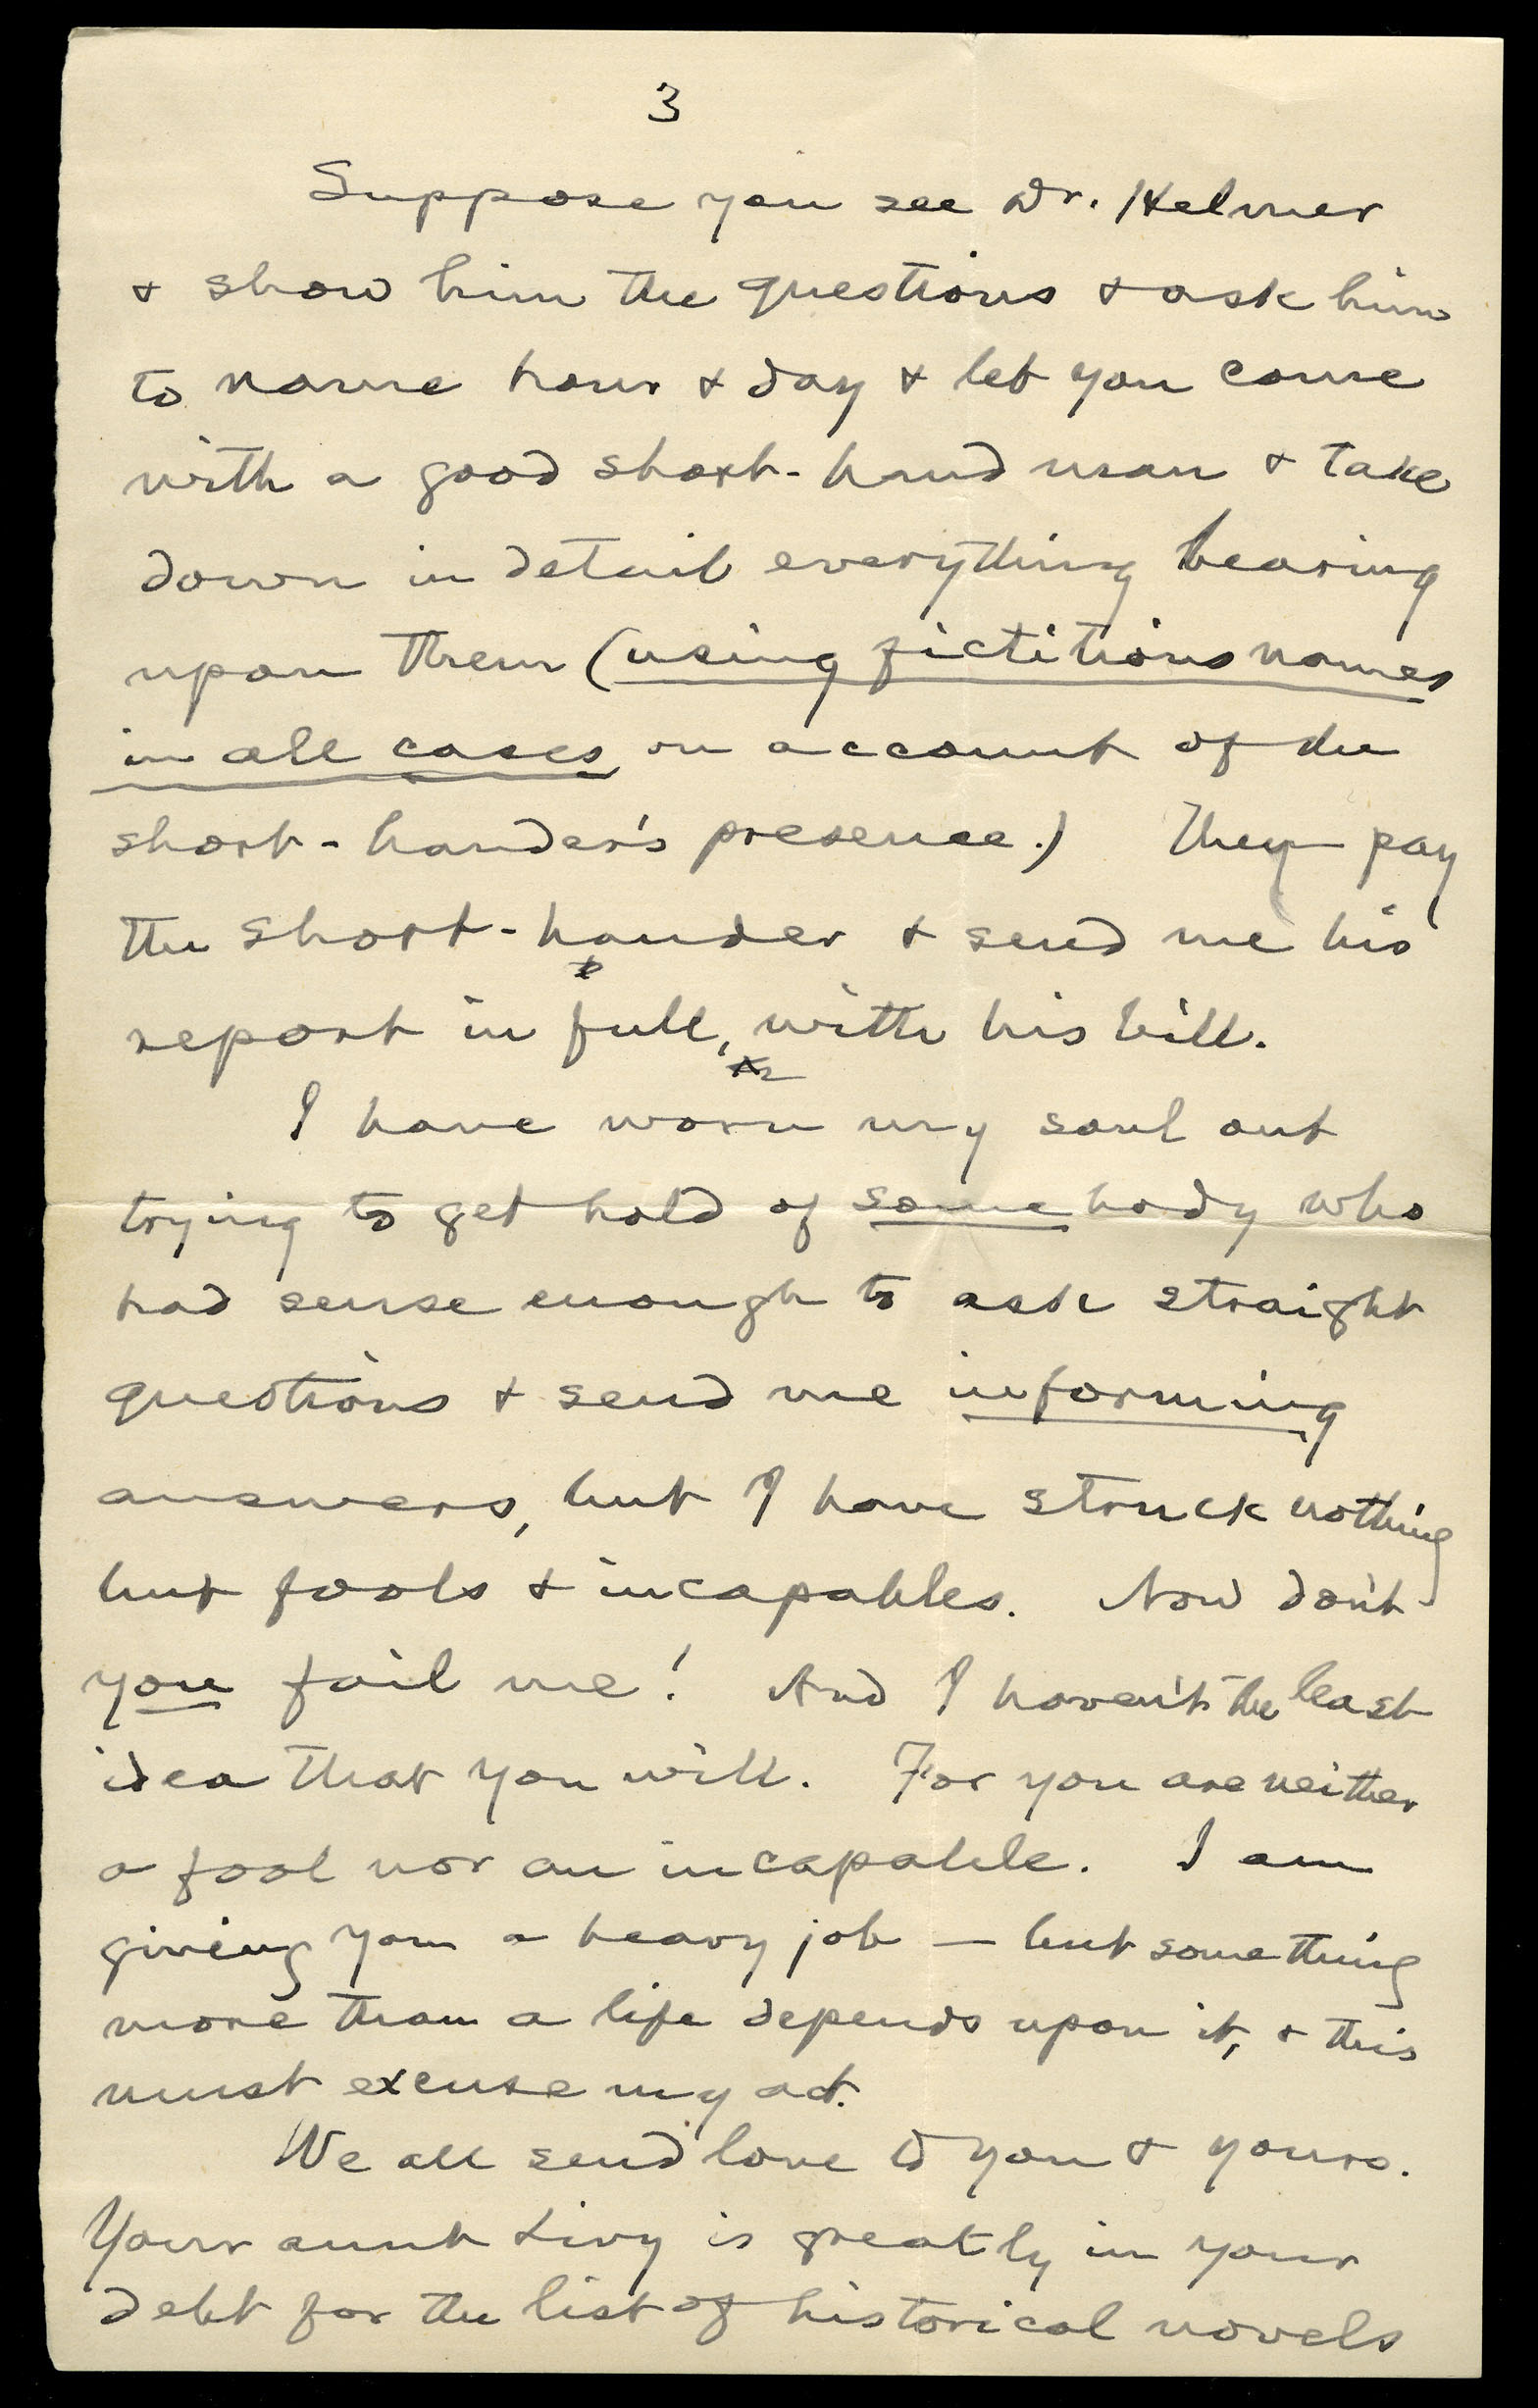 3
Suppose you see Dr. Helmer
& show him the questions & ask him
to name hour & day & let you come
with a good short-hand man & take
down in detail everything bearing
upon them (using fictitious names
in all cases, on account of the
short-hander's presence.) Then pay
the short-hander & send me his
report in full, with his bill.
I have worn my soul out
trying to get hold of somebody who
had sense enough to ask straight
questions & send me informing
answers, but I have struck nothing
but fools & incapables. Now don't
you fail me! And I haven't the least
idea that you will. For you are neither
a fool nor an incapable. I am
giving you a heavy job — but something
more than a life depends upon it, & this
must excuse my act.
We all send love to you & yours.
Your aunt Livy is greatly in your
debt for the list of historical novels